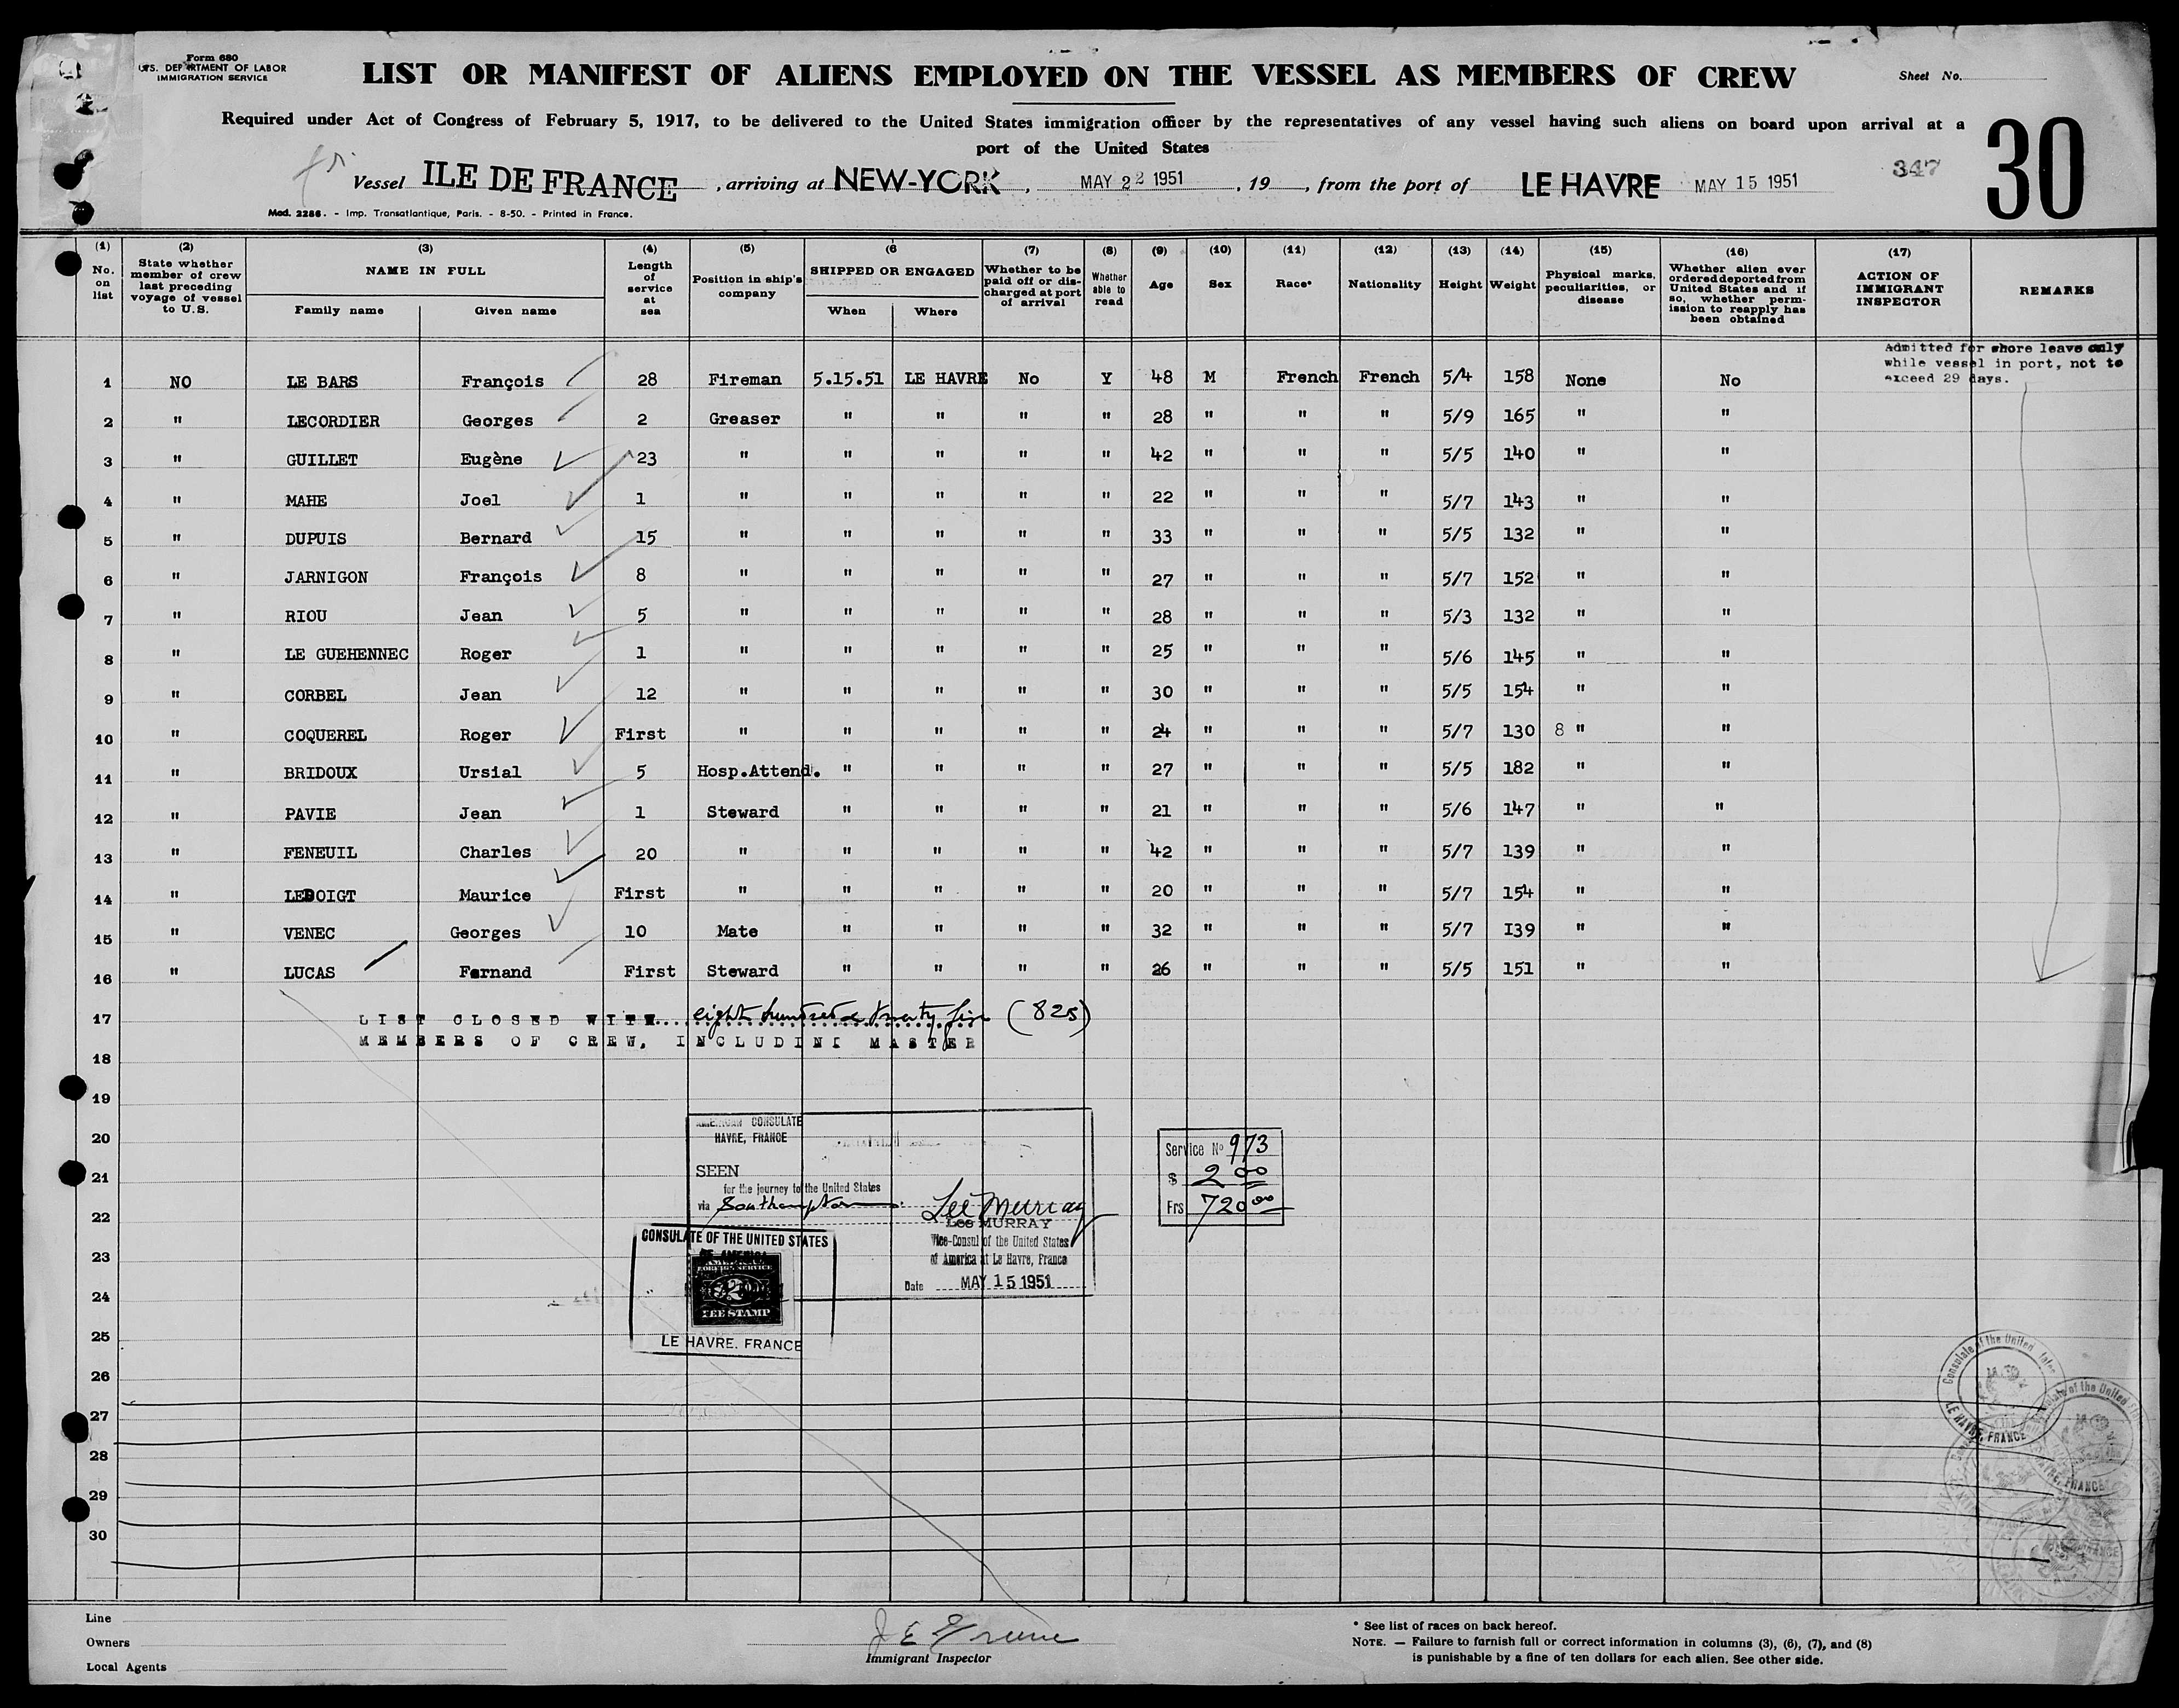 Form 680
U.S. DEPARTMENT OF LABOR
IMMIGRATION SERVICE
LIST OR MANIFEST OF ALIENS EMPLOYED ON THE VESSEL AS MEMBERS OF CREW
Sheet No.
Required under Act of Congress of February 5, 1917, to be delivered to the United States immigration officer by the representatives of any vessel having such aliens on board upon arrival at a
port of the United States
30
347
Vessel ILE DE FRANCE , arriving at NEW-YORK , MAY 22 1951 , 19 , from the port of LE HAVRE MAY 15 1951
Mod. 2286. - Imp. Transatlantique, Paris. - 8-50. - Printed in France.
(1) (2) (3) (4) (5) (6 (7) (8) (9) (10) (11) (12) (13) (14) (15) (16) (17)
No. on list
State whether member of crew last preceding voyage of vessel to U.S.
NAME IN FULL
Family name
Given name
Length of service at sea
Position in ship's company
SHIPPED OR ENGAGED
When
Where
Whether to be paid off or discharged at port of arrival
Whether able to read
Age
Sex
Race*
Nationality
Height
Weight
Physical marks, peculiarities, or disease
Whether alien ever ordered deported from United States and if so, whether permission to reapply has been obtained
ACTION OF IMMIGRANT INSPECTOR
REMARKS
Admitted for shore leave only
while vessel in port, not to
exceed 29 days.
1 NO LE BARS François 28 Fireman 5.15.51 LE HAVRE No Y 48 M French French 5/4 158 None No
2 " LECORDIER Georges 2 Greaser " " " " 28 " " " 5/9 165 " "
3 " GUILLET Eugène 23 " " " " " 42 " " " 5/5 140 " "
4 " MAHE Joel 1 " " " " " 22 " " " 5/7 143 " "
5 " DUPUIS Bernard 15 " " " " " 33 " " " 5/5 132 " "
6 " JARNIGON François 8 " " " " " 27 " " " 5/7 152 " "
7 " RIOU Jean 5 " " " " " 28 " " " 5/3 132 " "
8 " LE GUEHENNEC Roger 1 " " " " " 25 " " " 5/6 145 " "
9 " CORBEL Jean 12 " " " " " 30 " " " 5/5 154 " "
10 " COQUEREL Roger First " " " " " 24 " " " 5/7 130 8 " "
11 " BRIDOUX Ursial 5 Hosp.Attend. " " " " 27 " " " 5/5 182 " "
12 " PAVIE Jean 1 Steward " " " " 21 " " " 5/6 147 " "
13 " FENEUIL Charles 20 " " " " " 42 " " " 5/7 139 " "
14 " LEDOIGT Maurice First " " " " " 20 " " " 5/7 154 " "
15 " VENEC Georges 10 Mate " " " " 32 " " " 5/7 I39 " "
16 " LUCAS Fernand First Steward " " " " 26 " " " 5/5 151 " "
17 LIST CLOSED WITH.... eight hundred & twenty five (825)
MEMBERS OF CREW, INCLUDINI MASTER
18
19
20
21
22
23
24
25
26
27
28
29
30
AMERICAN CONSULATE
HAVRE, FRANCE
SEEN
for the journey to the United States
via Southampton
Lee Murray
Lee MURRAY
Vice-Consul of the United States
of America at Le Havre, France
Date MAY 15 1951
Service No 973
$ 2 00
Frs 720 00
CONSULATE OF THE UNITED STATES
OF AMERICA
FOREIGN SERVICE
FEE STAMP
LE HAVRE. FRANCE
Consulate of the United States
LE HAVRE, FRANCE
Line
Owners
Local Agents
Immigrant Inspector
* See list of races on back hereof.
NOTE. — Failure to furnish full or correct information in columns (3), (6), (7), and (8)
is punishable by a fine of ten dollars for each alien. See other side.